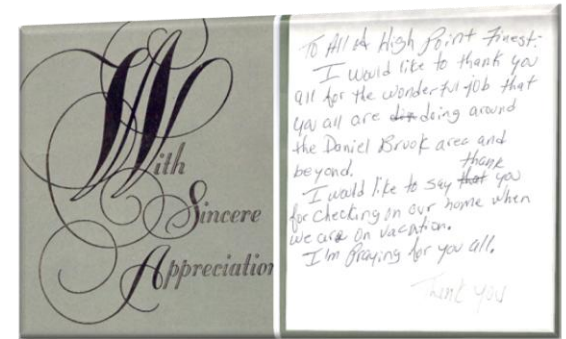 With
Sincere
Appreciation
To All of High Point Finest:
I would like to thank you
all for the wonderful job that
you all are doing around
the Daniel Brook area and
beyond.
thank
I would like to say that you
for checking on our home when
we are on vacation.
I'm Praying for you all.
Thank you